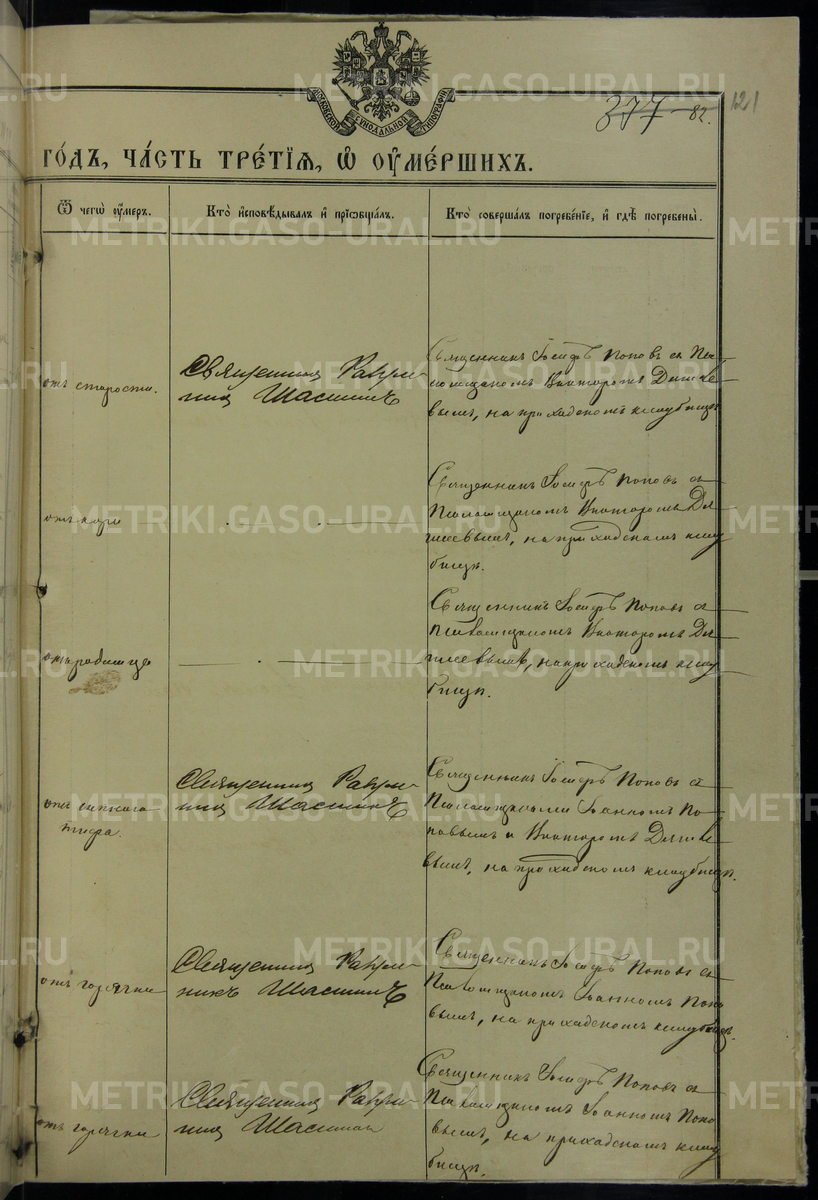 МОСКОВСКОЙ СѴНОДАЛЬНОЙ ТИПОГРАФІИ
377 82.
121
ГО́ДЪ, ЧА́СТЬ ТРЕ́ТІѦ, Ѡ҆ ОУ҆МЕ́РШИХЪ.
Ѿ чегѡ̀ оу҆́меръ.
Кто̀ и҆сповѣ́дывалъ и҆ прїѡбща́лъ.
Кто̀ соверша́лъ погребе́нїе, и҆ гдѣ̀ погребены̀.
отъ старости.
Священник
Шастинъ
Священникъ Іосифъ Поповъ съ Пса-
ломщикомъ Викторомъ
вымъ, на приходскомъ кладбищѣ
Священникъ Іосифъ Поповъ съ
Псаломщикомъ Викторомъ
на приходскомъ клад
бищѣ.
отъ родимца
Священникъ Іосифъ Поповъ съ
Псаломщикомъ Викторомъ
на приходскомъ клад
бищѣ.
отъ сыпного
тифа.
Священник
Шастинъ
Священникъ Іосифъ Поповъ съ
Псаломщиками Іоанномъ По-
повымъ и Викторомъ
вымъ, на приходскомъ кладбищѣ.
отъ горячки
Священник
Шастинъ
Священникъ Іосифъ Поповъ съ
Псаломщикомъ Іоанномъ Попо
вымъ, на приходскомъ кладбищѣ.
отъ горячки
Священник
Шастин
Священникъ Іосифъ Поповъ съ
Псаломщикомъ Іоанномъ Попо
вымъ, на приходскомъ клад
бищѣ.
METRIKI.GASO-URAL.RU